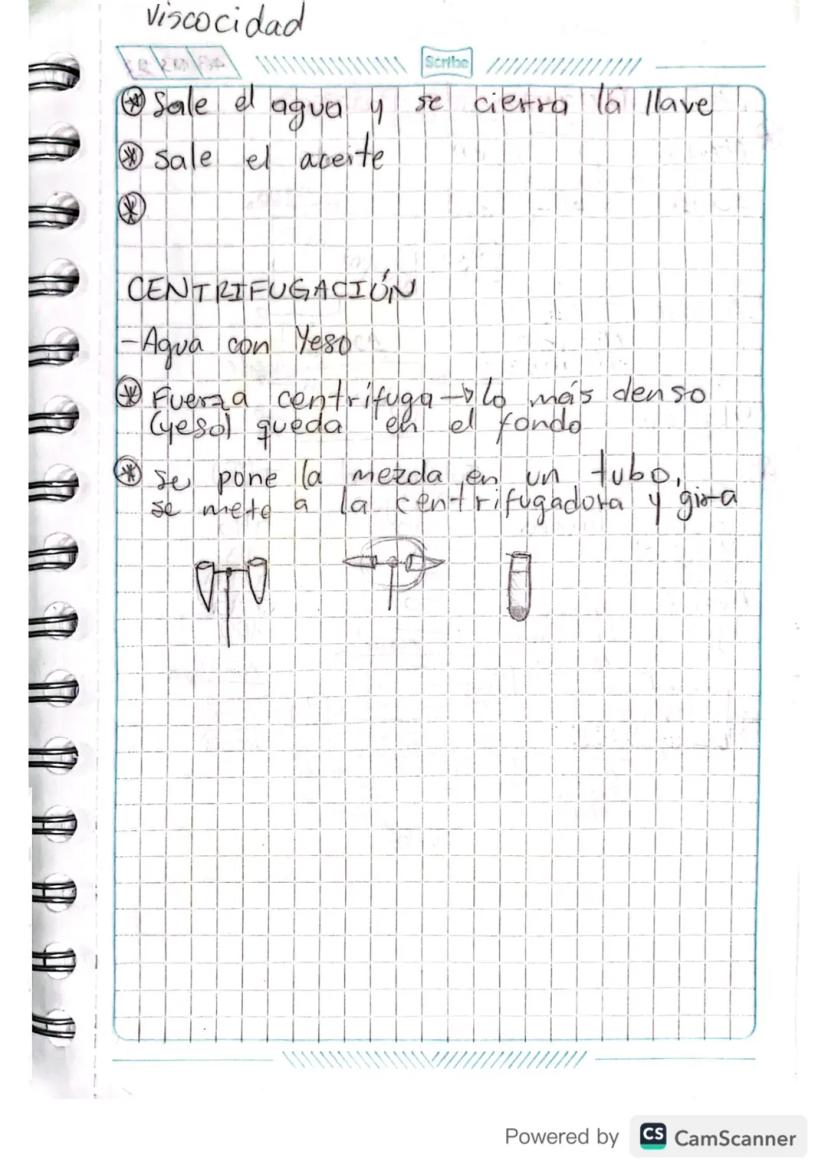 viscocidad
Scribe
⊛ Sale el agua y se cierra la llave
⊛ sale el aceite
⊛
CENTRIFUGACIÓN
-Agua con Yeso
⊛ Fuerza centrífuga → lo más denso
(yeso) queda en el fondo
⊛ se pone la mezcla en un tubo,
se mete a la centrifugadora y gira
Powered by CS CamScanner